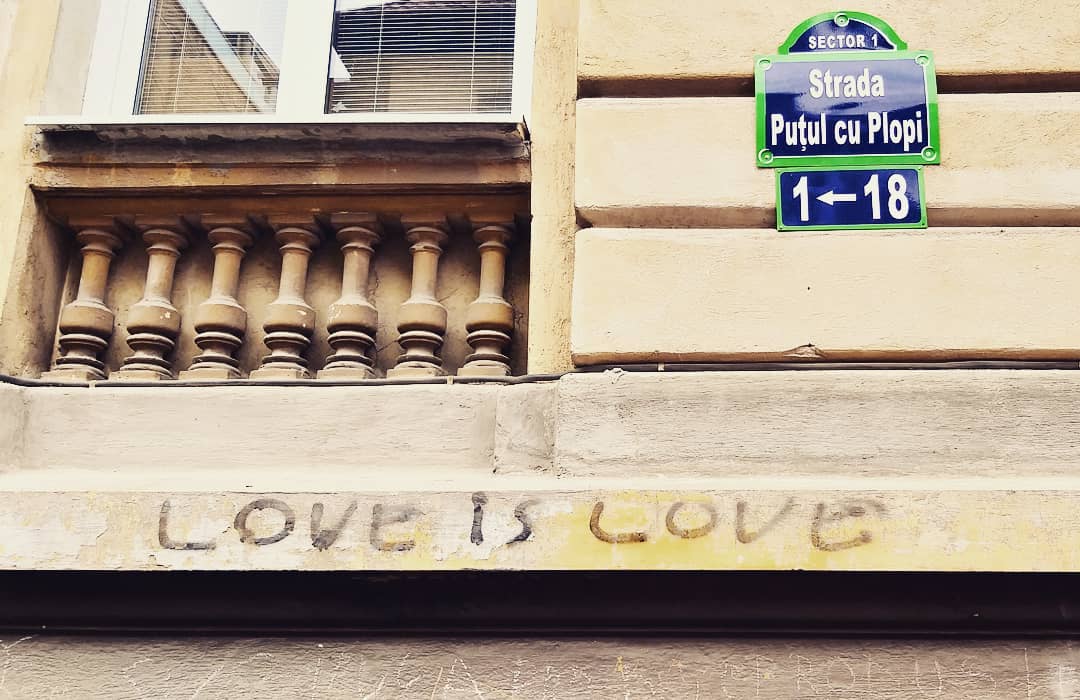 SECTOR 1
Strada
Puțul cu Plopi
1←18
LOVE is LOVE